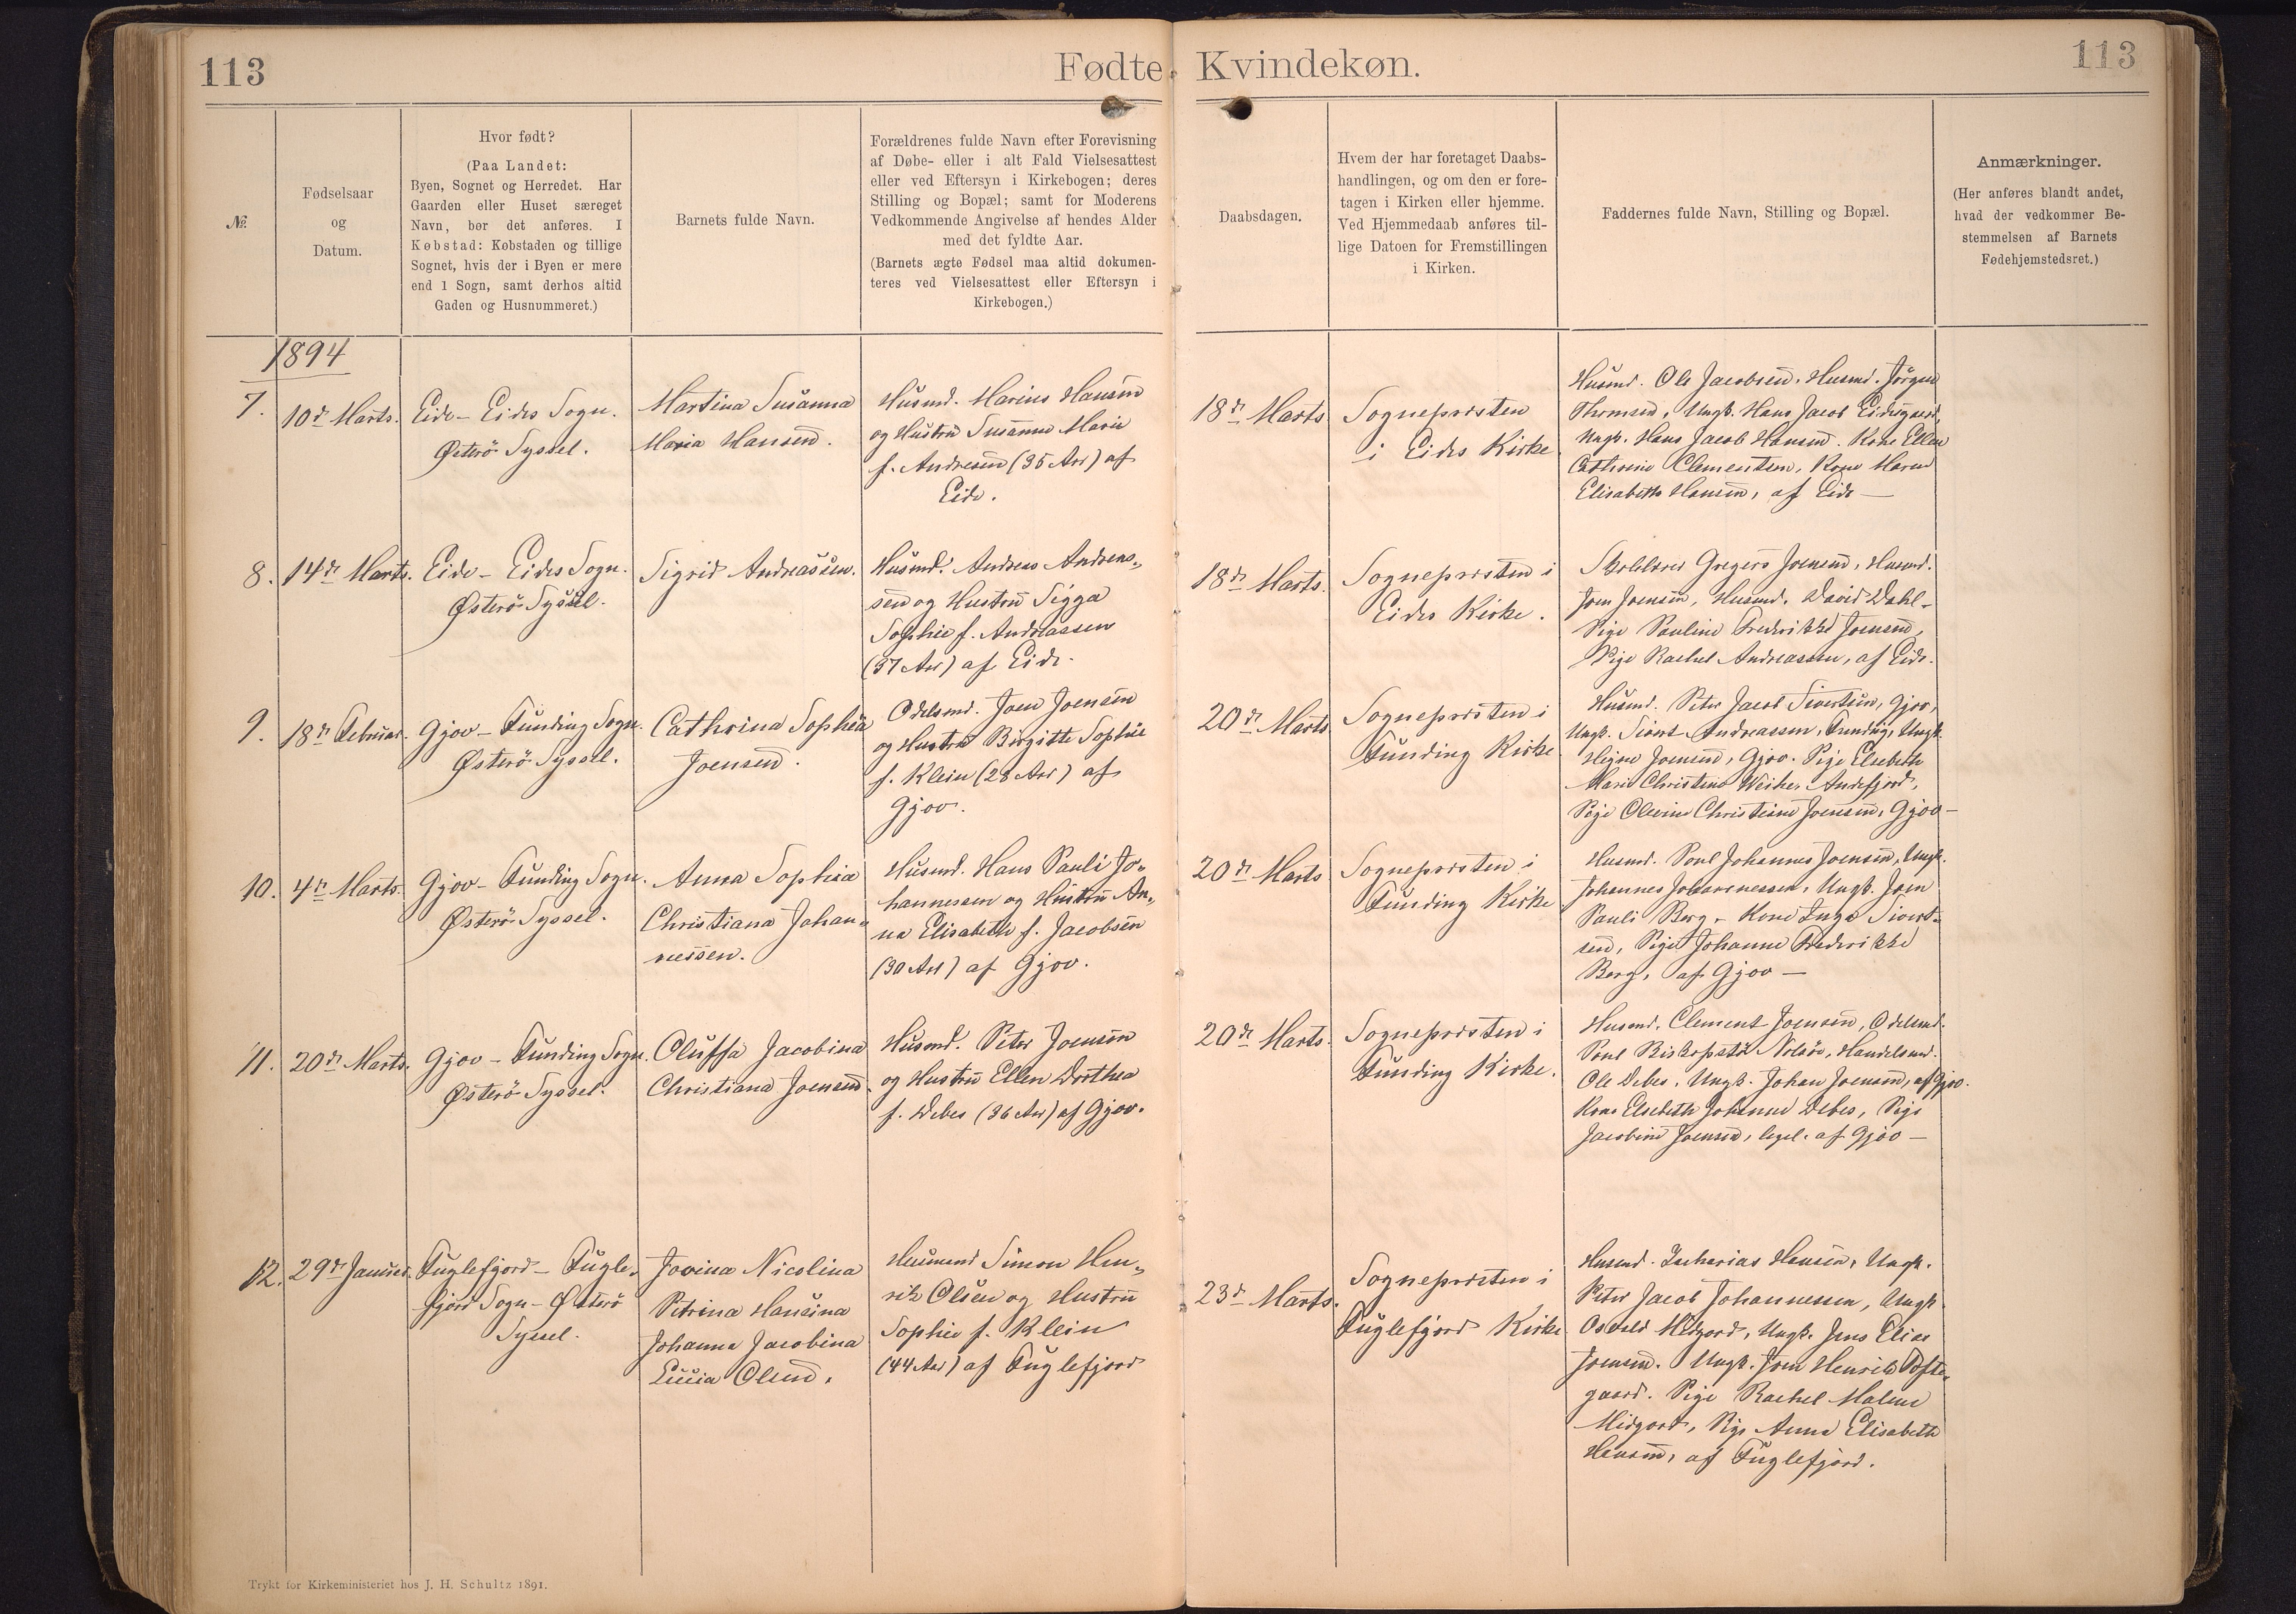 113
Fødte Kvindekøn.
113
№
Fødselsaar
og
Datum.
Hvor født?
(Paa Landet:
Byen, Sognet og Herredet. Har
Gaarden eller Huset særeget
Navn, bør det anføres. I
Købstad: Købstaden og tillige
Sognet, hvis der i Byen er mere
end 1 Sogn, samt derhos altid
Gaden og Husnummeret.)
Barnets fulde Navn.
Forældrenes fulde Navn efter Forevisning
af Døbe- eller i alt Fald Vielsesattest
eller ved Eftersyn i Kirkebogen; deres
Stilling og Bopæl; samt for Moderens
Vedkommende Angivelse af hendes Alder
med det fyldte Aar.
(Barnets ægte Fødsel maa altid dokumen-
teres ved Vielsesattest eller Eftersyn i
Kirkebogen.)
Daabsdagen.
Hvem der har foretaget Daabs-
handlingen, og om den er fore-
tagen i Kirken eller hjemme.
Ved Hjemmedaab anføres til-
lige Datoen for Fremstillingen
i Kirken.
Faddernes fulde Navn, Stilling og Bopæl.
Anmærkninger.
(Her anføres blandt andet,
hvad der vedkommer Be-
stemmelsen af Barnets
Fødehjemstedsret.)
1894
7.
10de Marts.
Eide - Eides Sogn.
Østerö Syssel.
Martina Susanna
Maria Hansen.
Husmd. Marius Hansen
og Hustru Susanne Marie
f. Andreasen (35 Aar) af
Eide.
18de Marts
Sognepræsten
i Eides Kirke
Husmd. Ole Jacobsen, Husmd. Jörgen
Thomsen, Ungk. Hans Jacob Eidesgaard,
Ungk. Hans Jacob Hansen. Kone Ellen
Cathrine Clementsen, Kone Maren
Elisabeth Hansen, af Eide -
8.
14de Marts.
Eide - Eides Sogn.
Østerö Syssel.
Sigrid Andreassen.
Husmd. Andreas Andreas-
sen og Hustru Sigga
Sophie f. Andreassen
(37 Aar) af Eide.
18de Marts.
Sognepræsten i
Eides Kirke.
Skolelærer Gregers Joensen, Husmd.
Joen Joensen, Husmd. David Dahl -
Pige Pauline Frederikke Joensen,
Pige Rachel Andreassen, af Eide.
9.
18de Februar.
Gjov - Funding Sogn.
Østerö Syssel.
Cathrina Sophia
Joensen.
Odelsmd. Joen Joensen
og Hustru Birgitte Sophie
f. Klein (28 Aar) af
Gjov.
20de Marts
Sognepræsten i
Funding Kirke
Husmd. Peter Jacob Sivertsen, Gjov,
Ungk. Sivert Andreassen, Funding, Ungk.
Joensen, Gjov. Pige Elsebeth
Marie Christine Weihe, Andefjord,
Pige Olevine Christine Joensen, Gjov -
10.
4de Marts.
Gjov - Funding Sogn.
Østerö Syssel.
Anna Sophia
Christiana Johan-
nessen.
Husmd. Hans Pauli Jo-
hannessen og Hustru An-
na Elisabeth f. Jacobsen
(30 Aar) af Gjov.
20de Marts
Sognepræsten i
Funding Kirke
Husmd. Poul Johannes Joensen, Ungk.
Johannes Johannessen, Ungk. Joen
Pauli Berg - Kone Inga Sivert-
sen, Pige Johanne Frederikke
Berg, af Gjov -
11.
20de Marts.
Gjov - Funding Sogn.
Østerö Syssel.
Oluffa Jacobina
Christiana Joensen.
Husmd. Peter Joensen
og Hustru Ellen Dorthea
f. Debes (36 Aar) af Gjov.
20de Marts.
Sognepræsten i
Funding Kirke.
Husmd. Clement Joensen, Odelsmd.
Poul Biskopstø Nolsöe, Handelsmd.
Ole Debes, Ungk. Johan Joensen, af Gjov.
Kone Elsebeth Johanne Debes, Pige
Jacobine Joensen, af Gjov -
12.
29de Januar.
Fuglefjord - Fugle-
fjord Sogn - Østerö
Syssel.
Jovina Nicolina
Petrina Hansina
Johanna Jacobina
Lucia Olsen.
Husmand Simon Hen-
rik Olsen og Hustru
Sophie f. Klein
(44 Aar) af Fuglefjord
23de Marts.
Sognepræsten i
Fuglefjord Kirke
Husmd. Zacharias Hansen, Ungk.
Peter Jacob Johannessen, Ungk.
Osvald Midgord, Ungk. Jens Elias
Joensen. Ungk. Joen Henrik Tofte-
gaard. Pige Rachel Malene
Midgord, Pige Anna Elisabeth
Hansen, af Fuglefjord.
Trykt for Kirkeministeriet hos J. H. Schultz 1891.